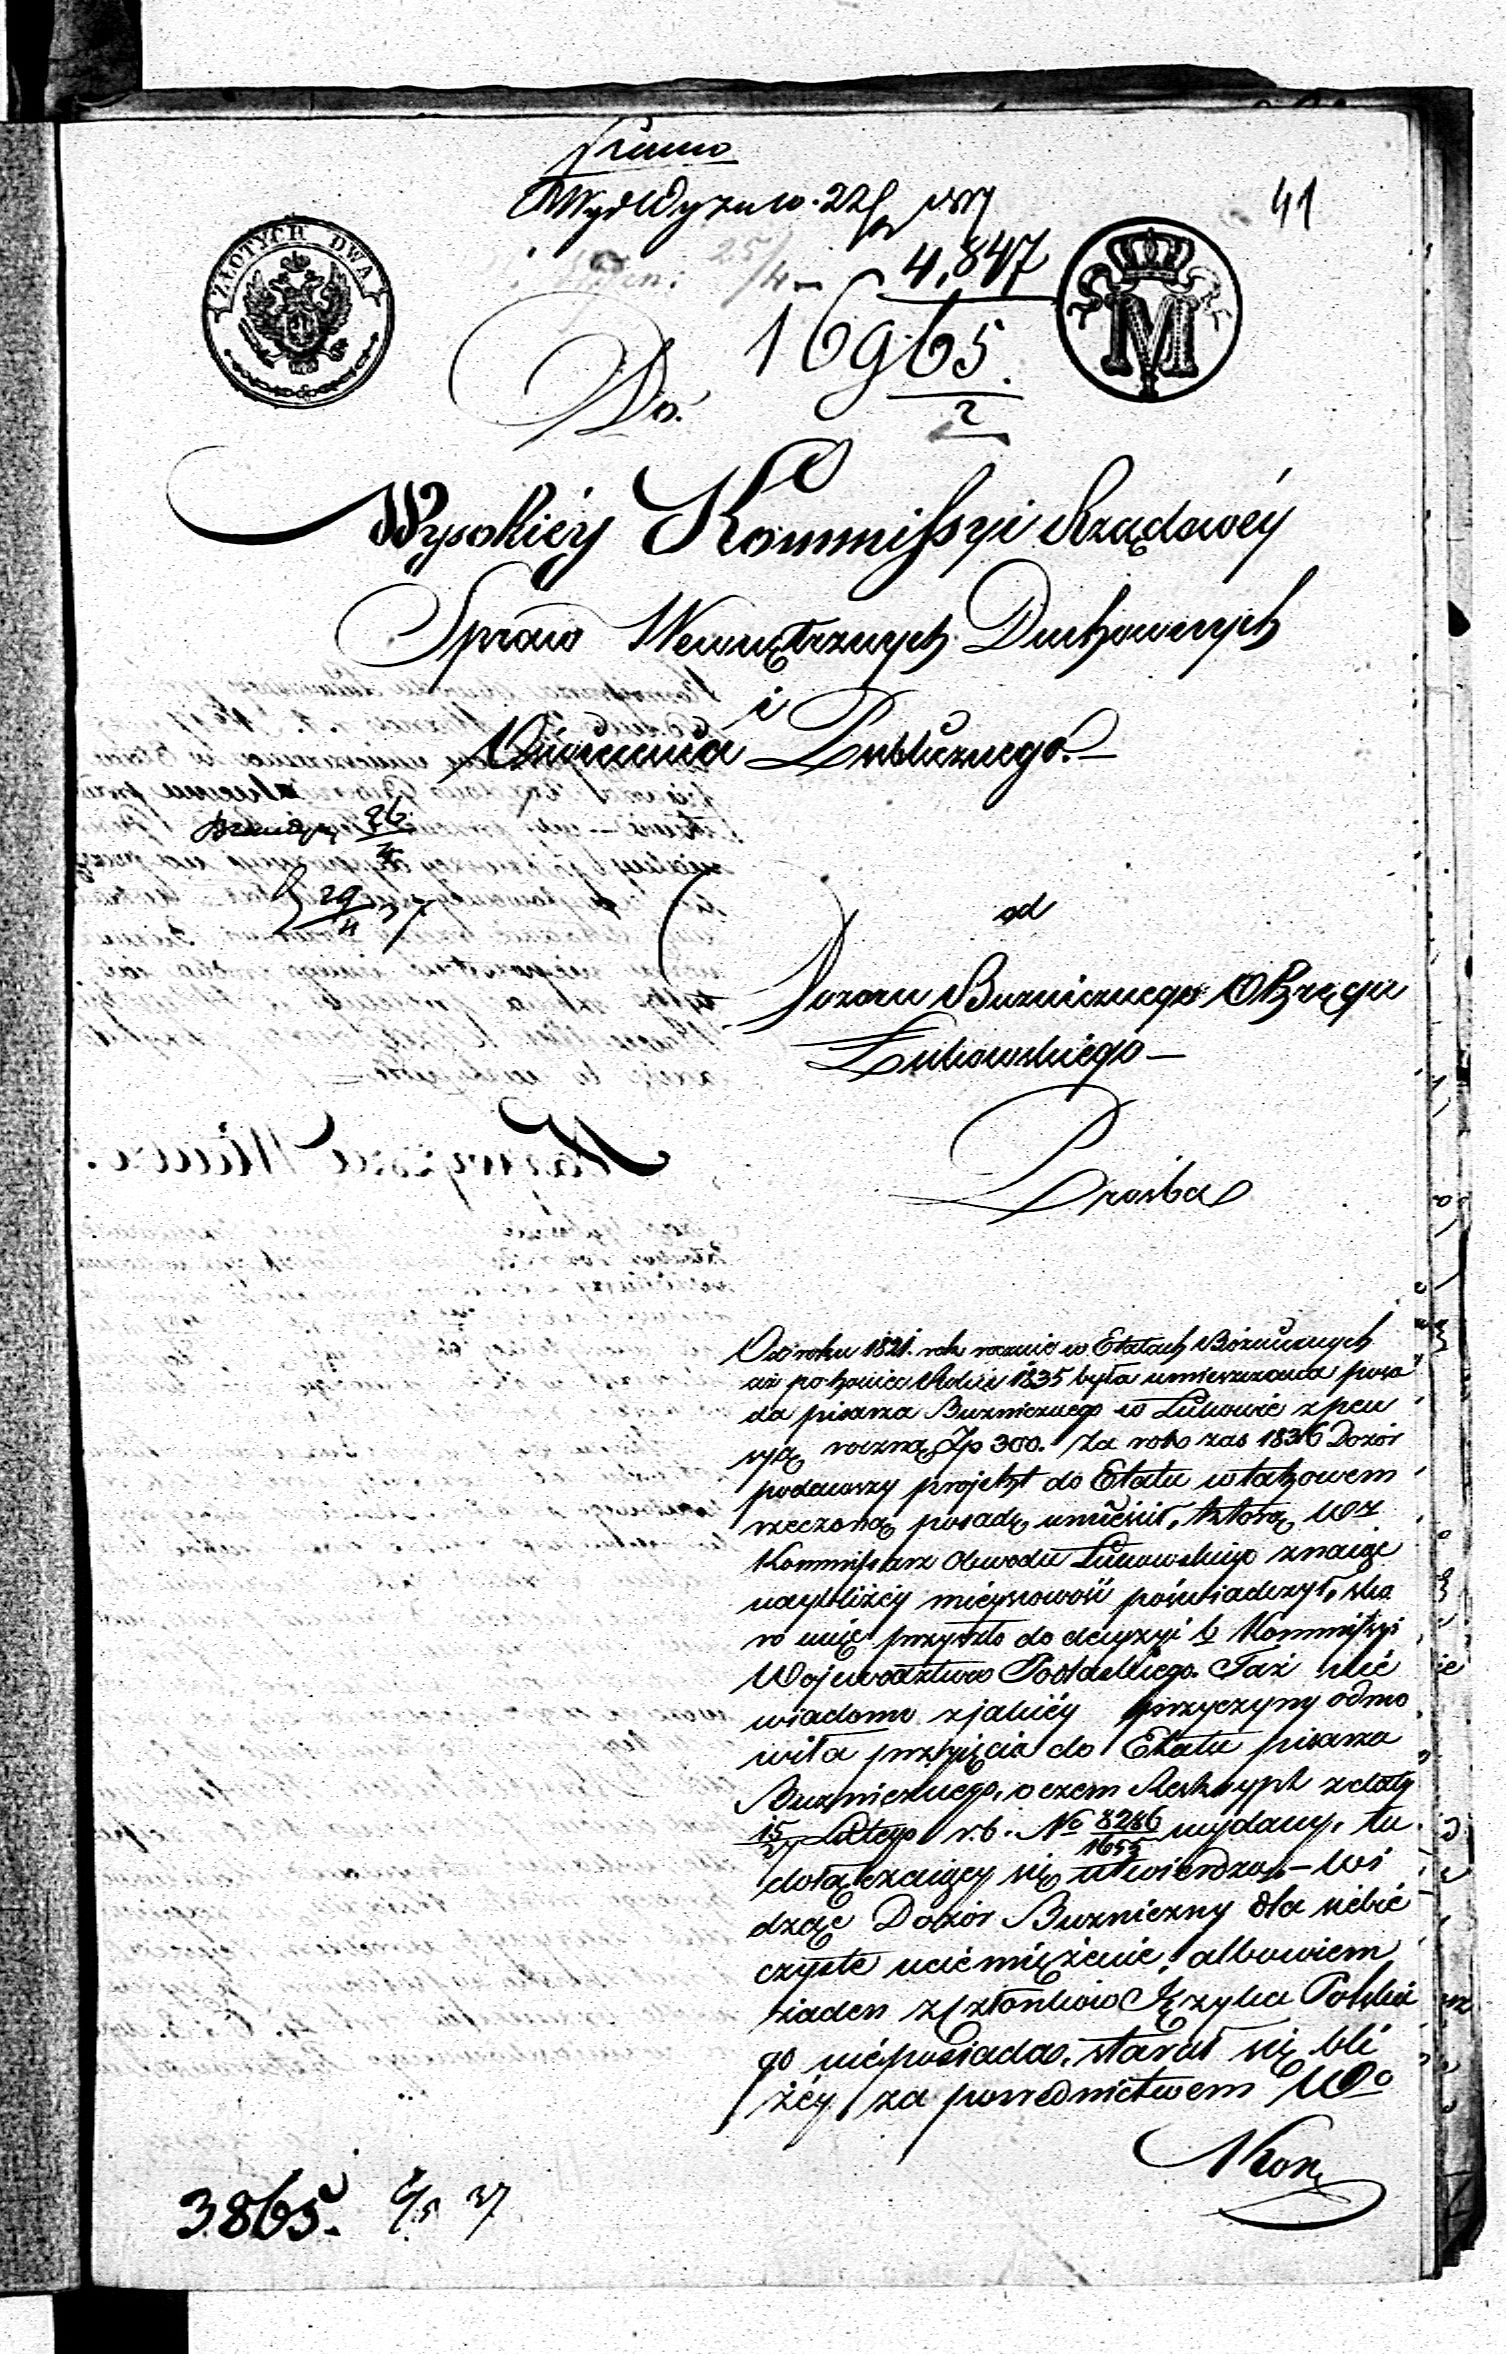 41
ZŁOTYCH DWA
4,847
16965
2
Do
Wysokiéy Kommissyi Rządowéy
Spraw Wewnętrznych Duchownych
i
Oświecenia Publicznego. —
26
29
37
od
Dozoru Buzniczego Okręgu
Łukowskiego —
Prośba
Od roku 1821. rok rocznie w Etatach Bóżniczných
aż po koniec Roku 1835 była umieszczana posa
da pisarza Buzniczego w Łukowie z pen
syą roczną Zp 300. Za rok zas 1836 Dozór
podawszy projekt do Etatu w takowem
rzeczoną posadę umieścił, którą W°
Kommissarz Obwodu Łukowskiego znaiąc
naybliżéy mieyscowość poświadczył, sko
ro więc przyszło do decyzyi b Kommissyi
Wojewodztwa Podlaskiego. Taż nie
wiadomo z jakiéy przyczyny odmo
wiła przyięcia do Etatu pisarza
Buzniczego, o czem Reskrypt z daty
15/27 Lutego r. b. N° 8286/1655 wydany, tu
dołączaiący się utwierdza, — Wi
dząc Dozór Buzniczny dla siebie
czyste uciemiężenie, albowiem
żaden z członków Języka Polskie
go nieposiada, starał się bli
żéy za posrednictwem W°
Kom
3865. 37